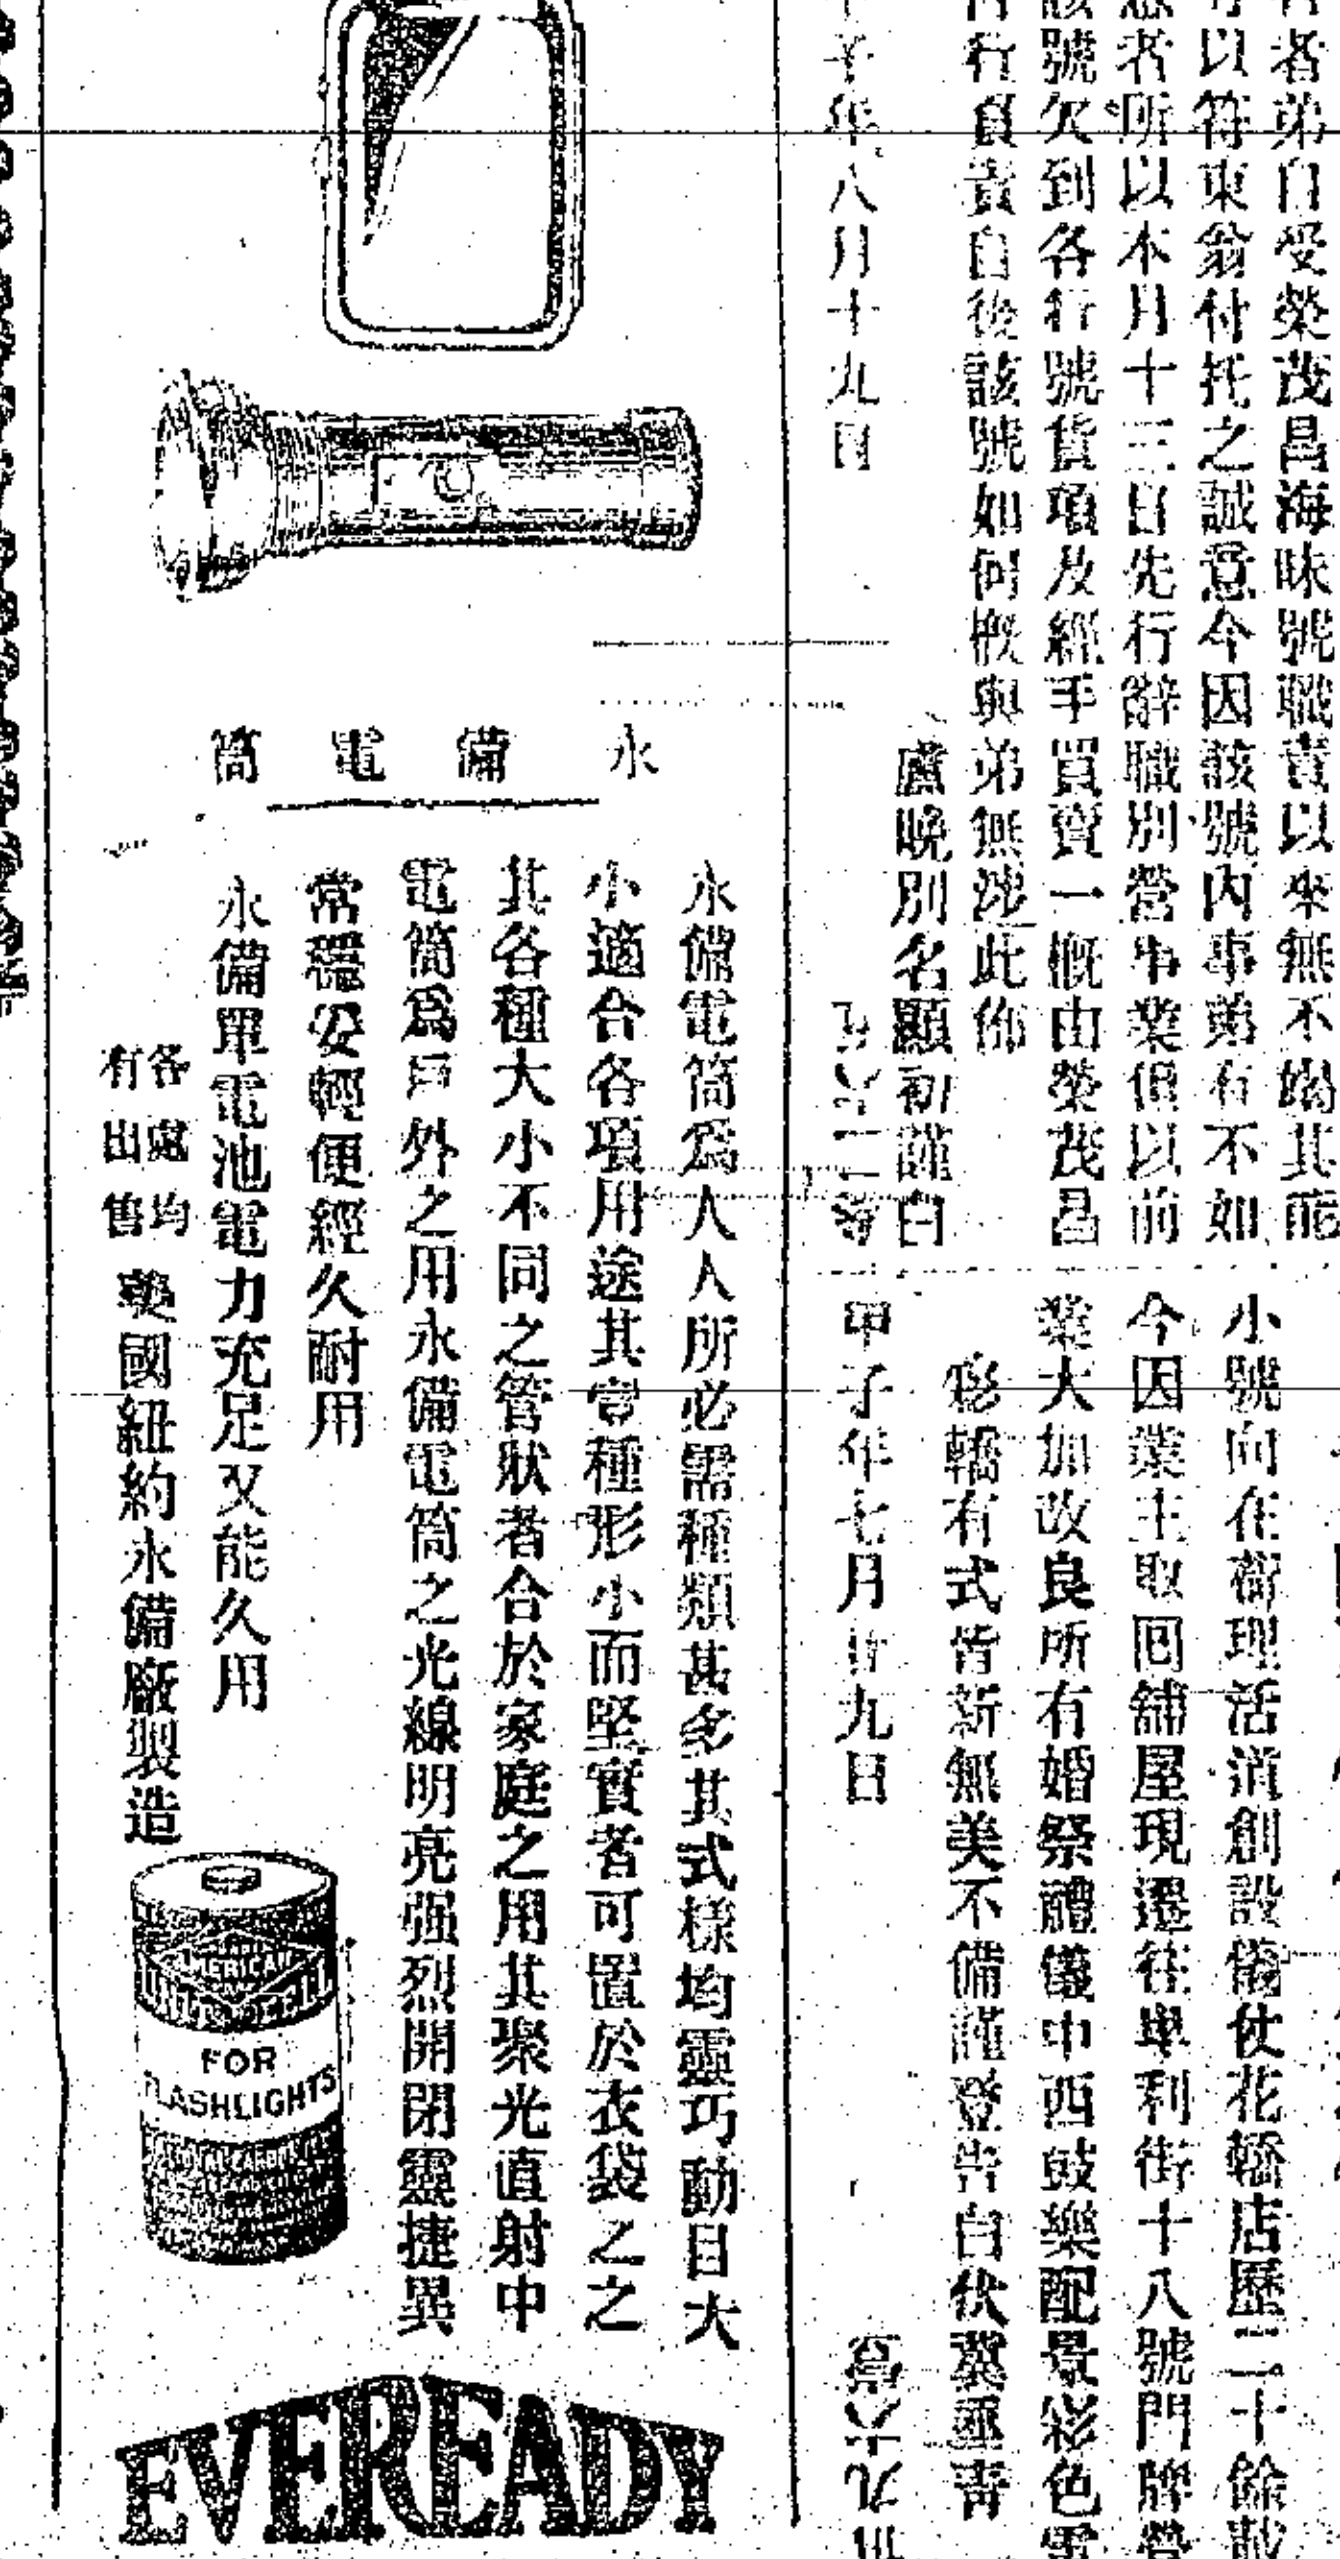 者弟自受榮茂昌海味號職責以來無不竭其能
以符東翁付托之誠意今因該號內事弟有不如
者所以本月十三日先行辭職別營事業但以前
號欠到各行號貨項及經手買賣一概由榮茂昌
行負責自後該號如何概與弟無涉此佈
盧晚別名顯初謹白
子年八月十九日
小號向在衛理活道創設儀仗花轎店歷二十餘載
今因業主取回舖屋現遷往畢利街十八號門牌營
業大加改良所有婚祭禮儀中西鼓樂配景彩色電
彩轎有式皆新無美不備謹登告白伏冀垂青
甲子年七月廿九日
永備電筒
永備電筒為人人所必需種類甚多其式樣均靈巧動目大
小適合各項用途其壹種形小而堅實者可置於衣袋之之
其各種大小不同之管狀者合於家庭之用其聚光直射中
電筒爲戶外之用永備電筒之光線明亮强烈開閉靈捷異
常穩妥輕便經久耐用
永備單電池電力充足又能久用
各處均
有出售
美國紐約永備廠製造
AMERICAN
FOR
FLASHLIGHTS
EVEREADY